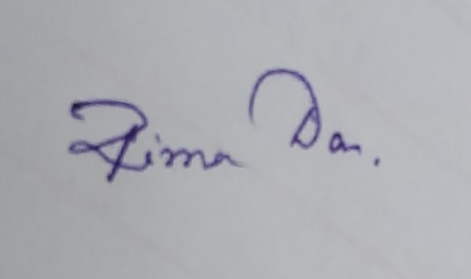 Rima Das.